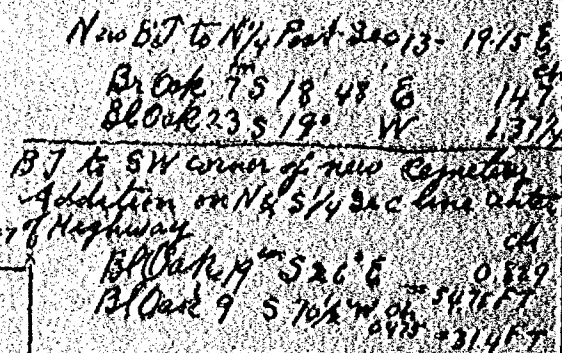 New B.T. to N 1/4 Post Sec 13 - 19.15 E
Br Oak 7 in S 18° 48' E 147
Bl Oak 23 S 19° W 1.37 1/4
B T to SW corner of new Cemetery
Addition on N & S 1/4 Sec line center
of Highway ch
Bl Oak 19 in S 26° E 0.829
= 54.75 FT
Bl Oak 9 S 70 1/2 W ch 0.475
= 31.4 FT